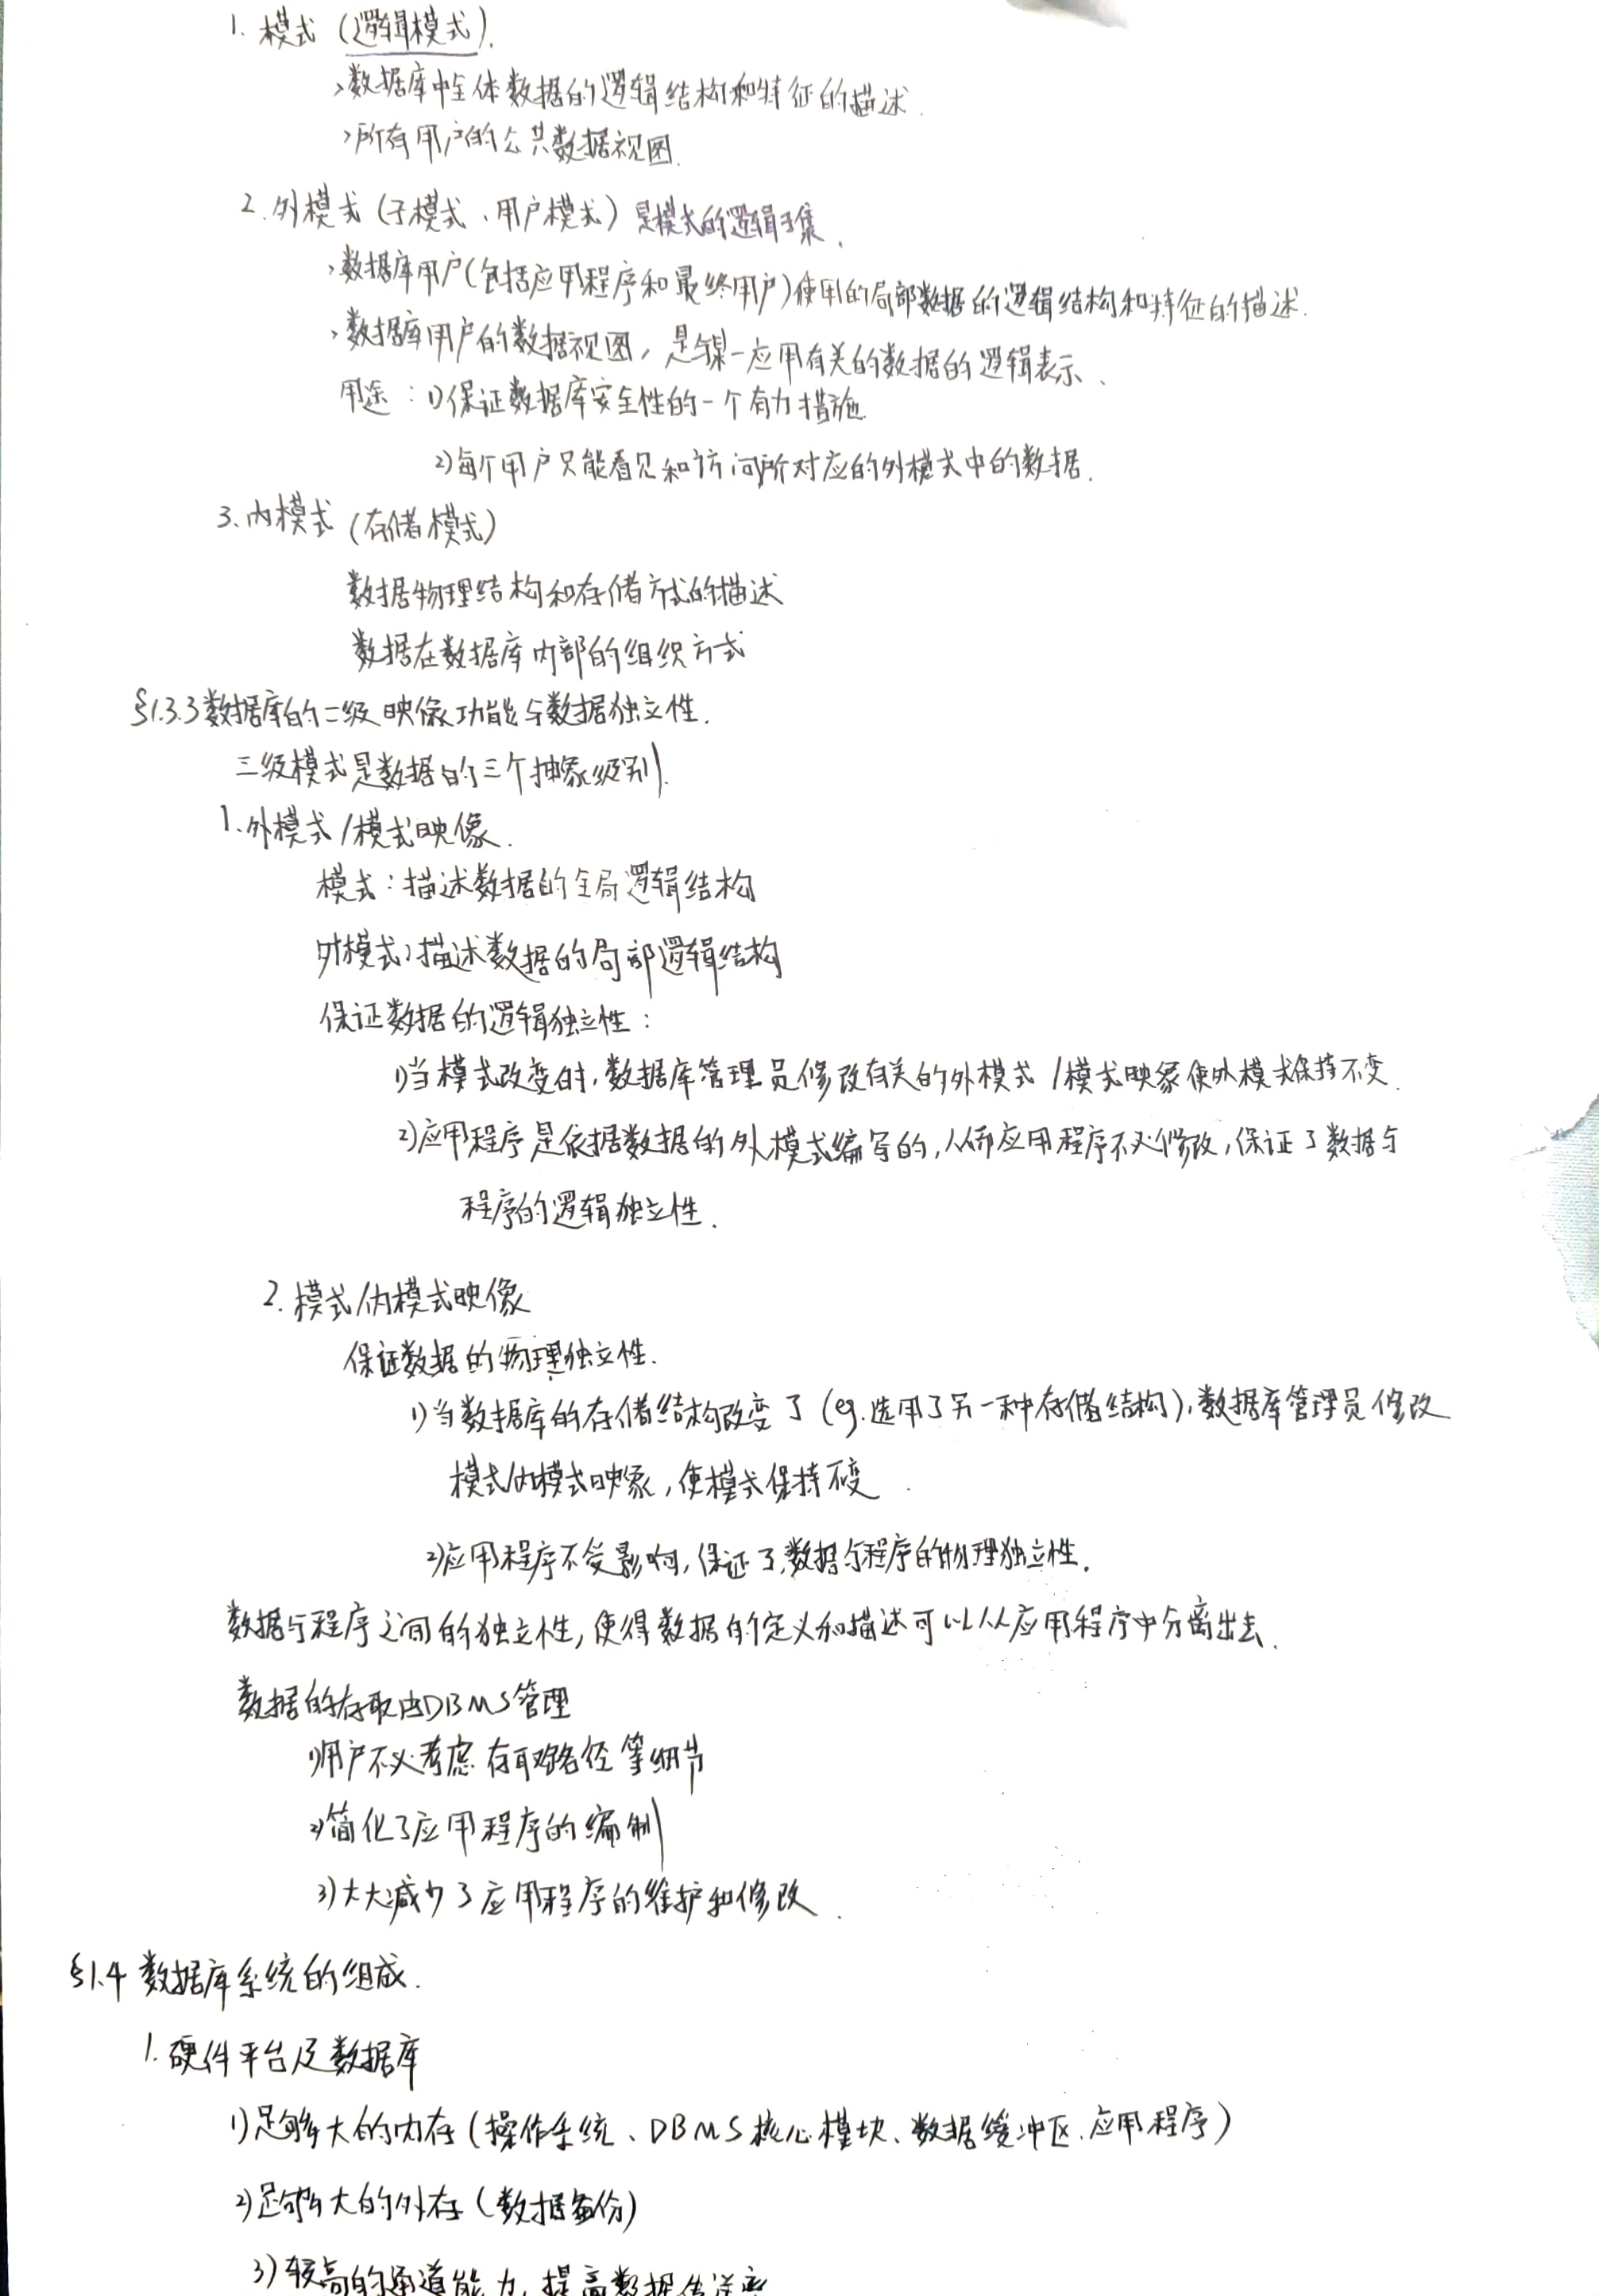 1. 模式 (逻辑模式).
>数据库中全体数据的逻辑结构和特征的描述.
>所有用户的公共数据视图.
2. 外模式 (子模式、用户模式) 是模式的逻辑子集.
>数据库用户(包括应用程序和最终用户)使用的局部数据的逻辑结构和特征的描述.
>数据库用户的数据视图, 是与某一应用有关的数据的逻辑表示、
用途: 1)保证数据库安全性的一个有力措施
2)每个用户只能看见和访问所对应的外模式中的数据.
3、内模式 (存储模式)
数据物理结构和存储方式的描述
数据在数据库内部的组织方式
§1.3.3 数据库的二级映像功能与数据独立性.
三级模式是数据的三个抽象级别.
1、外模式/模式映像.
模式: 描述数据的全局逻辑结构
外模式: 描述数据的局部逻辑结构
保证数据的逻辑独立性:
1)当模式改变时, 数据库管理员修改有关的外模式/模式映象使外模式保持不变.
2)应用程序是依据数据的外模式编写的, 从而应用程序不必修改, 保证了数据与
程序的逻辑独立性.
2. 模式/内模式映像
保证数据的物理独立性.
1)当数据库的存储结构改变了 (eg.选用了另一种存储结构), 数据库管理员修改
模式/内模式映象, 使模式保持不变.
2)应用程序不受影响, 保证了数据与程序的物理独立性.
数据与程序之间的独立性, 使得数据的定义和描述可以从应用程序中分离出去.
数据的存取由DBMS管理
1)用户不必考虑存取路径等细节
2)简化了应用程序的编制
3)大大减少了应用程序的维护和修改.
§1.4 数据库系统的组成.
1. 硬件平台及数据库
1)足够大的内存(操作系统、DBMS核心模块、数据缓冲区、应用程序)
2)足够大的外存(数据备份)
3)较高的通道能力, 提高数据传送率